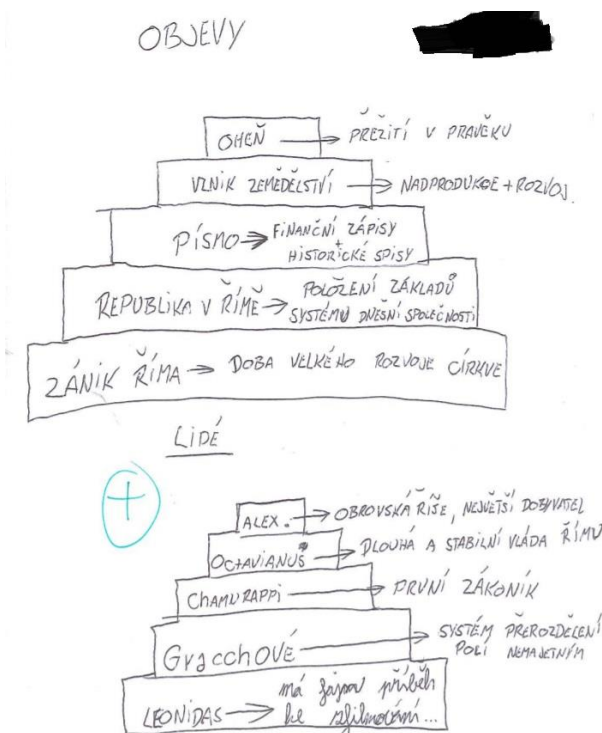 OBJEVY
OHEŇ → PŘEŽITÍ V PRAVĚKU
VZNIK ZEMĚDĚLSTVÍ → NADPRODUKCE + ROZVOJ.
PÍSMO → FINANČNÍ ZÁPISY
+
HISTORICKÉ SPISY
REPUBLIKA V ŘÍMĚ → POLOŽENÍ ZÁKLADŮ
SYSTÉMU DNEŠNÍ SPOLEČNOSTI
ZÁNIK ŘÍMA → DOBA VELKÉHO ROZVOJE CÍRKVE
LIDÉ
+
ALEX. → OBROVSKÁ ŘÍŠE, NEJVĚTŠÍ DOBYVATEL
OCTAVIANUS → DLOUHÁ A STABILNÍ VLÁDA ŘÍMU
CHAMURAPPI → PRVNÍ ZÁKONÍK
GracchOVÉ → SYSTÉM PŘEROZDĚLENÍ
POLÍ NEMAJETNÝM
LEONIDAS → má fajnou příběh
ke zfilmování...